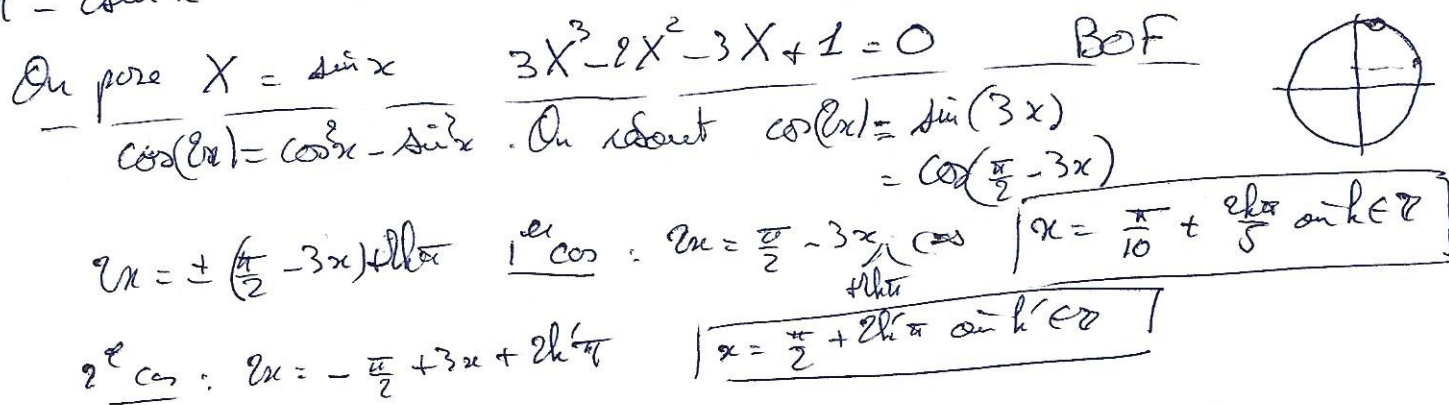 On pose X = sin x 3X³-2X²-3X+1=0 BOF
cos(2x)=cos²x-sin²x. On résout cos(2x)=sin(3x)
= cos(π/2 -3x)
2x = ± (π/2 -3x)+2kπ 1er cas : 2x = π/2 -3x +2kπ x = π/10 + 2kπ/5 où k∈ℤ
2e cas : 2x = - π/2 +3x + 2k'π x = π/2 + 2k'π où k'∈ℤ